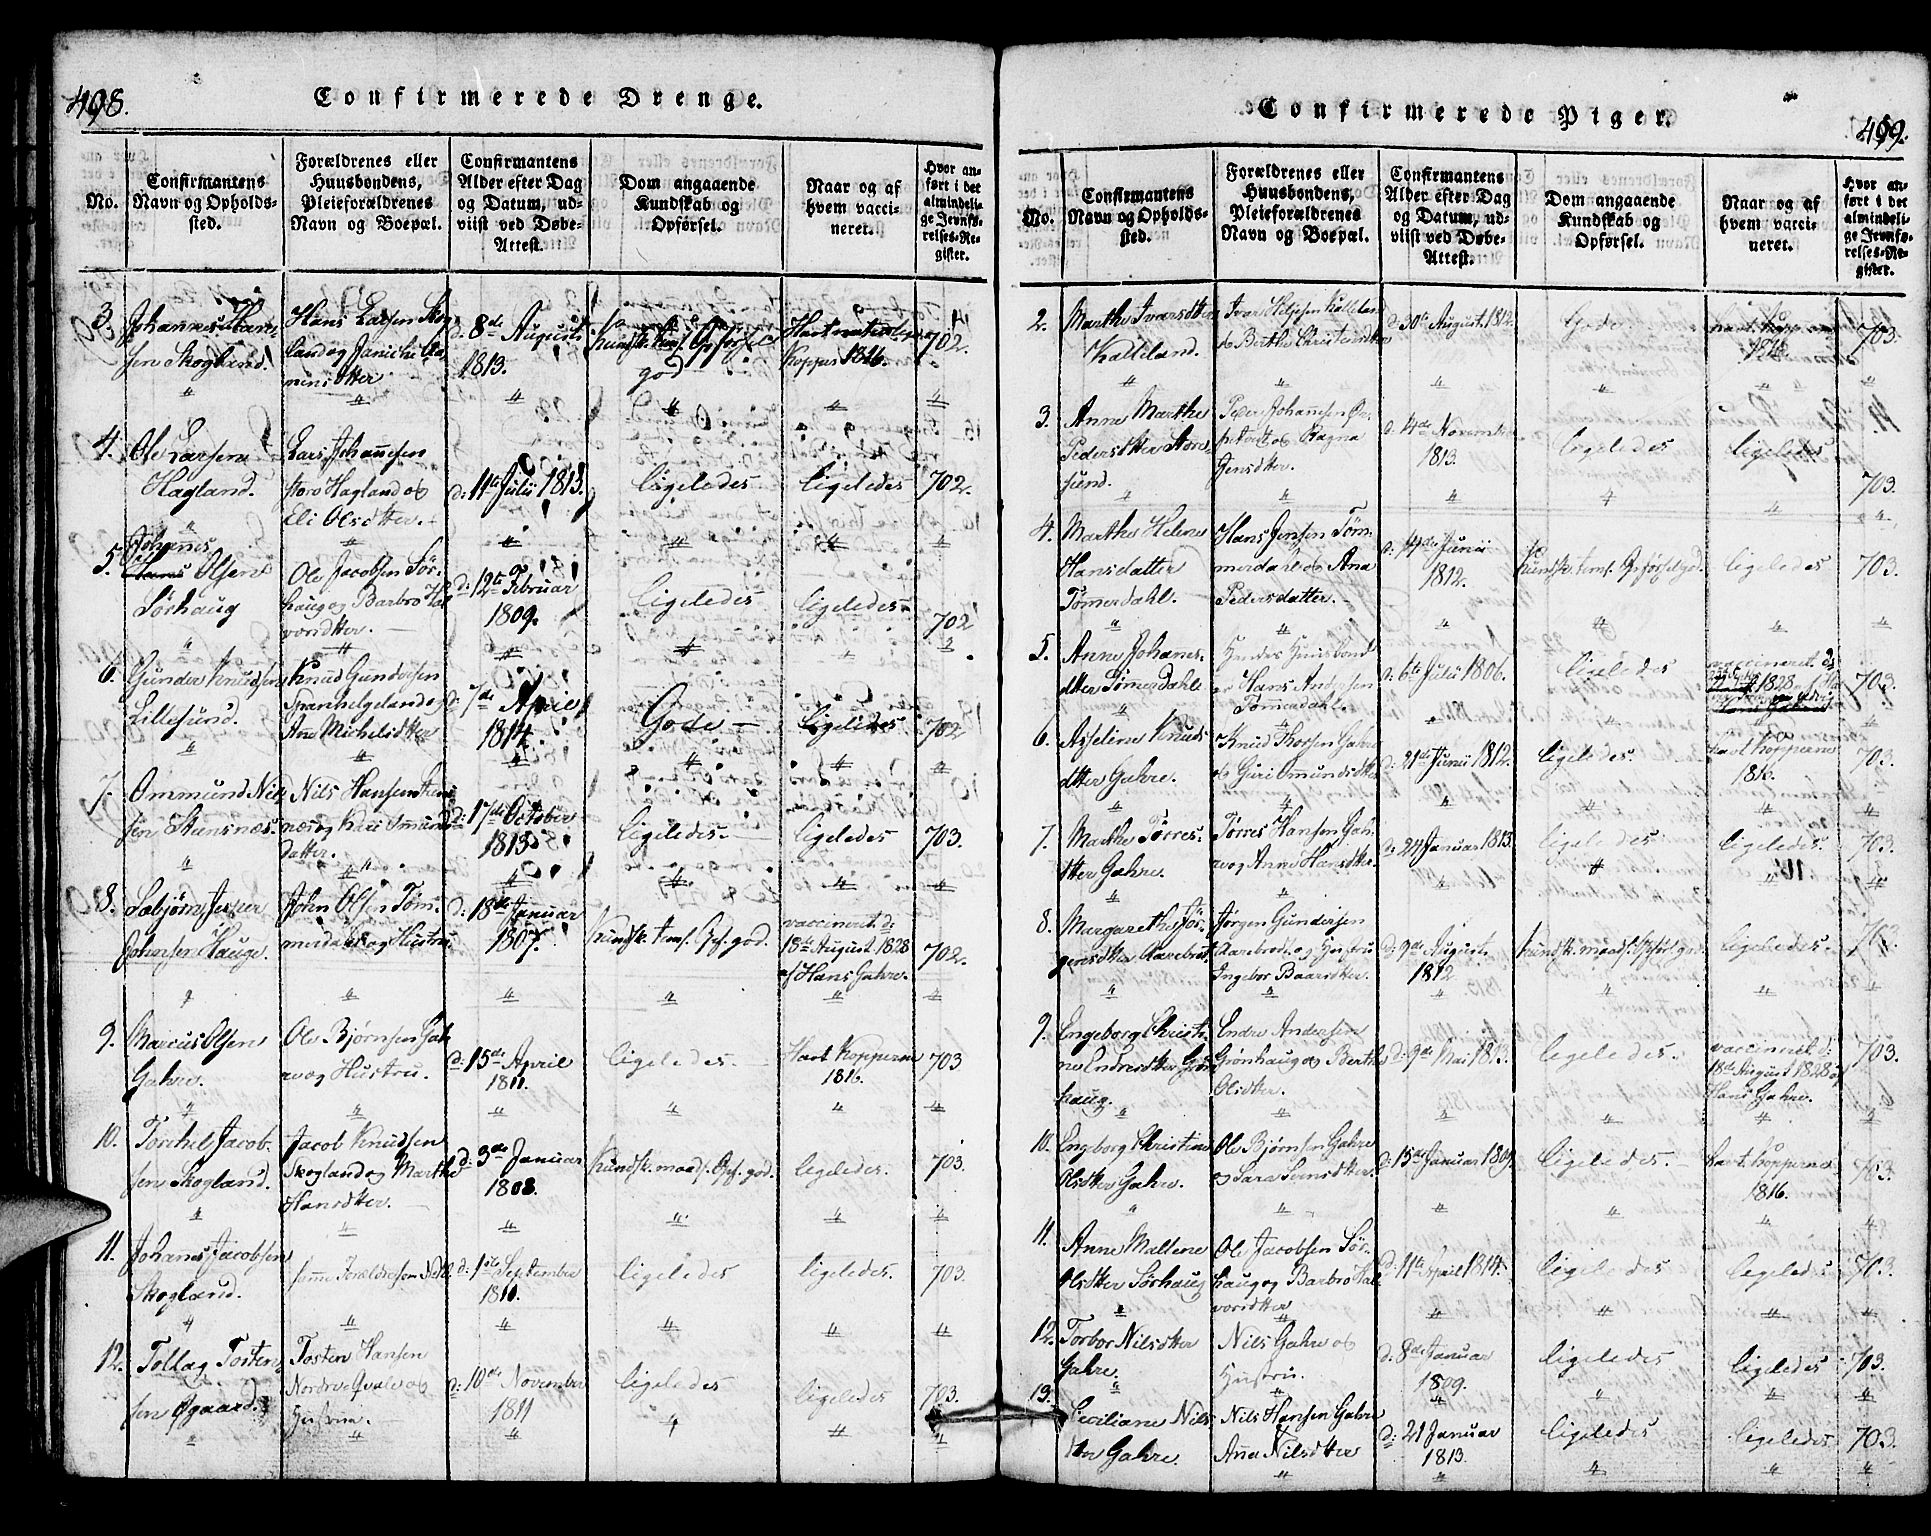 498.
Confirmerede Drenge.
No.
Confirmantens
Navn og Opholds-
sted.
Forældrenes eller
Huusbondens,
Pleieforældrenes
Navn og Boepæl.
Confirmantens
Alder efter Dag
og Datum, ud-
viist ved Døbe-
Attest.
Dom angaaende
Kundskab og
Opførsel.
Naar og af
hvem vacci-
neret.
Hvor an-
ført i det
almindeli-
ge Jevnfø-
relses-Re-
gister.
3. Johannes Han-
sen Skogland.
Hans Larsen Skog-
land og
d: 8de August
1813.
Kundsk. temf. Opførsel
god
Havt naturlige
kopper 1816.
702.
4. Ole Larsen
Hagland.
Lars Johannesen
store Hagland og
Eli Olsdtter.
d: 11te Julii 1813.
ligeledes
ligeledes
702.
5. Johannes
Hans Olsen
Sørhaug
Ole Jacobsen Sør-
haug og Barbro Hal-
vorsdtter.
d: 12te Februar
1809.
ligeledes
ligeledes
702
6. Gunder Knudsen
Lillesund.
Knud Gundersen
Spanhelgeland og
Ane Michelsdtter
d: 7de April
1814.
Gode
ligeledes
702
7. Ommund Niel-
sen Steensnæs.
Nils Hansen Steens-
næs og Kari Omunds-
datter.
d: 17de October
1813
ligeledes
ligeledes
703.
8. Sæbjørn Jesper
Johnsen Hauge.
John Olsen Tøm-
merdahl og Hustru
d: 18de Januar
1807.
Kundsk. temf. Opf. god.
vaccineret d:
18de August 1828
af Hans Gahre.
702.
9. Marcus Olsen
Gahre.
Ole Bjørnsen Gah-
re og Hustru.
d: 15de April
1811.
ligeledes
Havt Kopperne
1816.
703
10. Torchel Jacob-
sen Skogland.
Jacob Knudsen
Skogland og Marthe
Hansdtter.
d: 3de Januar
1808.
Kundsk. maad. Opf. god.
ligeledes.
703.
11. Johanes Jacobsen
Skogland.
samme Forældre som No 10.
d: 1ste September
1810.
ligeledes
ligeledes.
703.
12. Tollag Tosten-
sen Øgaard.
Tosten Hansen
Nordre Qvale og
Hustrue.
d: 10de November
1811
ligeledes
ligeledes
703.
499.
Confirmerede Piger.
No.
Confirmantens
Navn og Opholds-
sted.
Forældrenes eller
Huusbondens,
Pleieforældrenes
Navn og Boepæl.
Confirmantens
Alder efter Dag
og Datum, ud-
viist ved Døbe-
Attest.
Dom angaaende
Kundskab og
Opførsel.
Naar og af
hvem vacci-
neret.
Hvor an-
ført i det
almindeli-
ge Jevnfø-
relses-Re-
gister.
2. Marthe Ivarsdtter
Kalleland.
Ivar Helgesen Kalleland
og Berthe Christensdtter
d: 30te August 1812.
Gode
havt kopperne
1816.
703.
3. Anne Marthe
Pedersdtter Store-
sund.
Peder Johansen
og Ragna
Jensdtter.
d. 4de November
1813.
ligeledes
ligeledes
703.
4. Marthe Helene
Hansdatter
Tømerdahl.
Hans Jensen Tøm-
merdahl og Ana
Pedersdatter.
d. 14de Junii
1812.
Kundsk. temf. Opførsel gd.
ligeledes
703.
5. Anne Johanes-
dtter Tømerdahl
Hendes Huusbond
er Hans Andersen
Tømerdahl.
d: 6te Julii 1806.
ligeledes
vaccineret d:
1828.
703.
6. Asseline Knuds-
dtter Gahre.
Knud Thorsen Gahre
og Guri Omundsdtter
d: 21de Junii 1812.
ligeledes.
havt kopperne
1816.
703.
7. Marthe Tørres-
dtter Gahre.
Tørres Hansen Gah-
re og Anne Hansdtter.
d: 24 Januar 1813.
ligeledes
ligeledes.
703.
8. Margarethe Jør-
gensdtter Aarebrot.
Jørgen Gundersen
Aarebrod og Hustru
Ingebor Baarsdtter.
d: 9de August
1812
Kundsk. maad. Opførsel god
ligeledes
703.
9. Engeborg Christi-
ne Endresdtter Grøn-
haug.
Endre Andersen
Grønhaug og Berthe
Olsdtter.
d: 9de Mai 1813.
ligeledes.
vaccineret d:
18de August 1828 af
Hans Gahre.
703.
10. Engeborg Christine
Olsdtter Gahre.
Ole Bjørnsen Gahre
og Sara
d: 15de Januar 1809.
ligeledes.
havt kopperne
1816.
703.
11. Anne Maltene
Olsdtter Sørhaug
Ole Jacobsen Sør-
haug og Barbro Hal-
vorsdtter
d: 11te April 1814.
ligeledes
ligeledes
703.
12. Torbor Nilsdtter
Gahre.
Nils Gahre og
Hustru.
d. 8de Januar
1809.
ligeledes
ligeledes
703.
13. Ceciliane Nils-
dtr Gahre.
Nils Hansen Gahre
Ana Nilsdtter
d: 21 Januar
1813.
ligeledes
ligeledes
703.